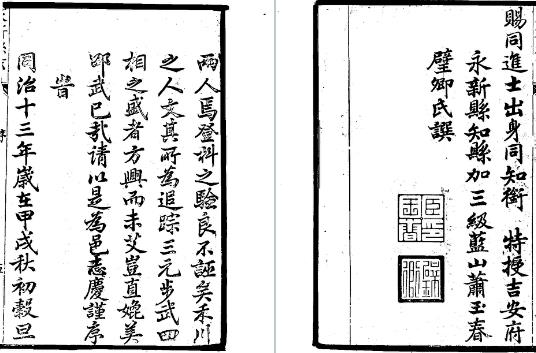 兩人焉登科之驗良不誣矣禾川
之人文其所為追踪三元步武四
相之盛者方興而未艾豈直媲美
邵武已哉請以是為邑志慶謹序
旹
同治十三年歲在甲戌秋初穀旦
賜同進士出身同知銜 特授吉安府
永新縣知縣加三級藍山蕭玉春
璧卿氏譔